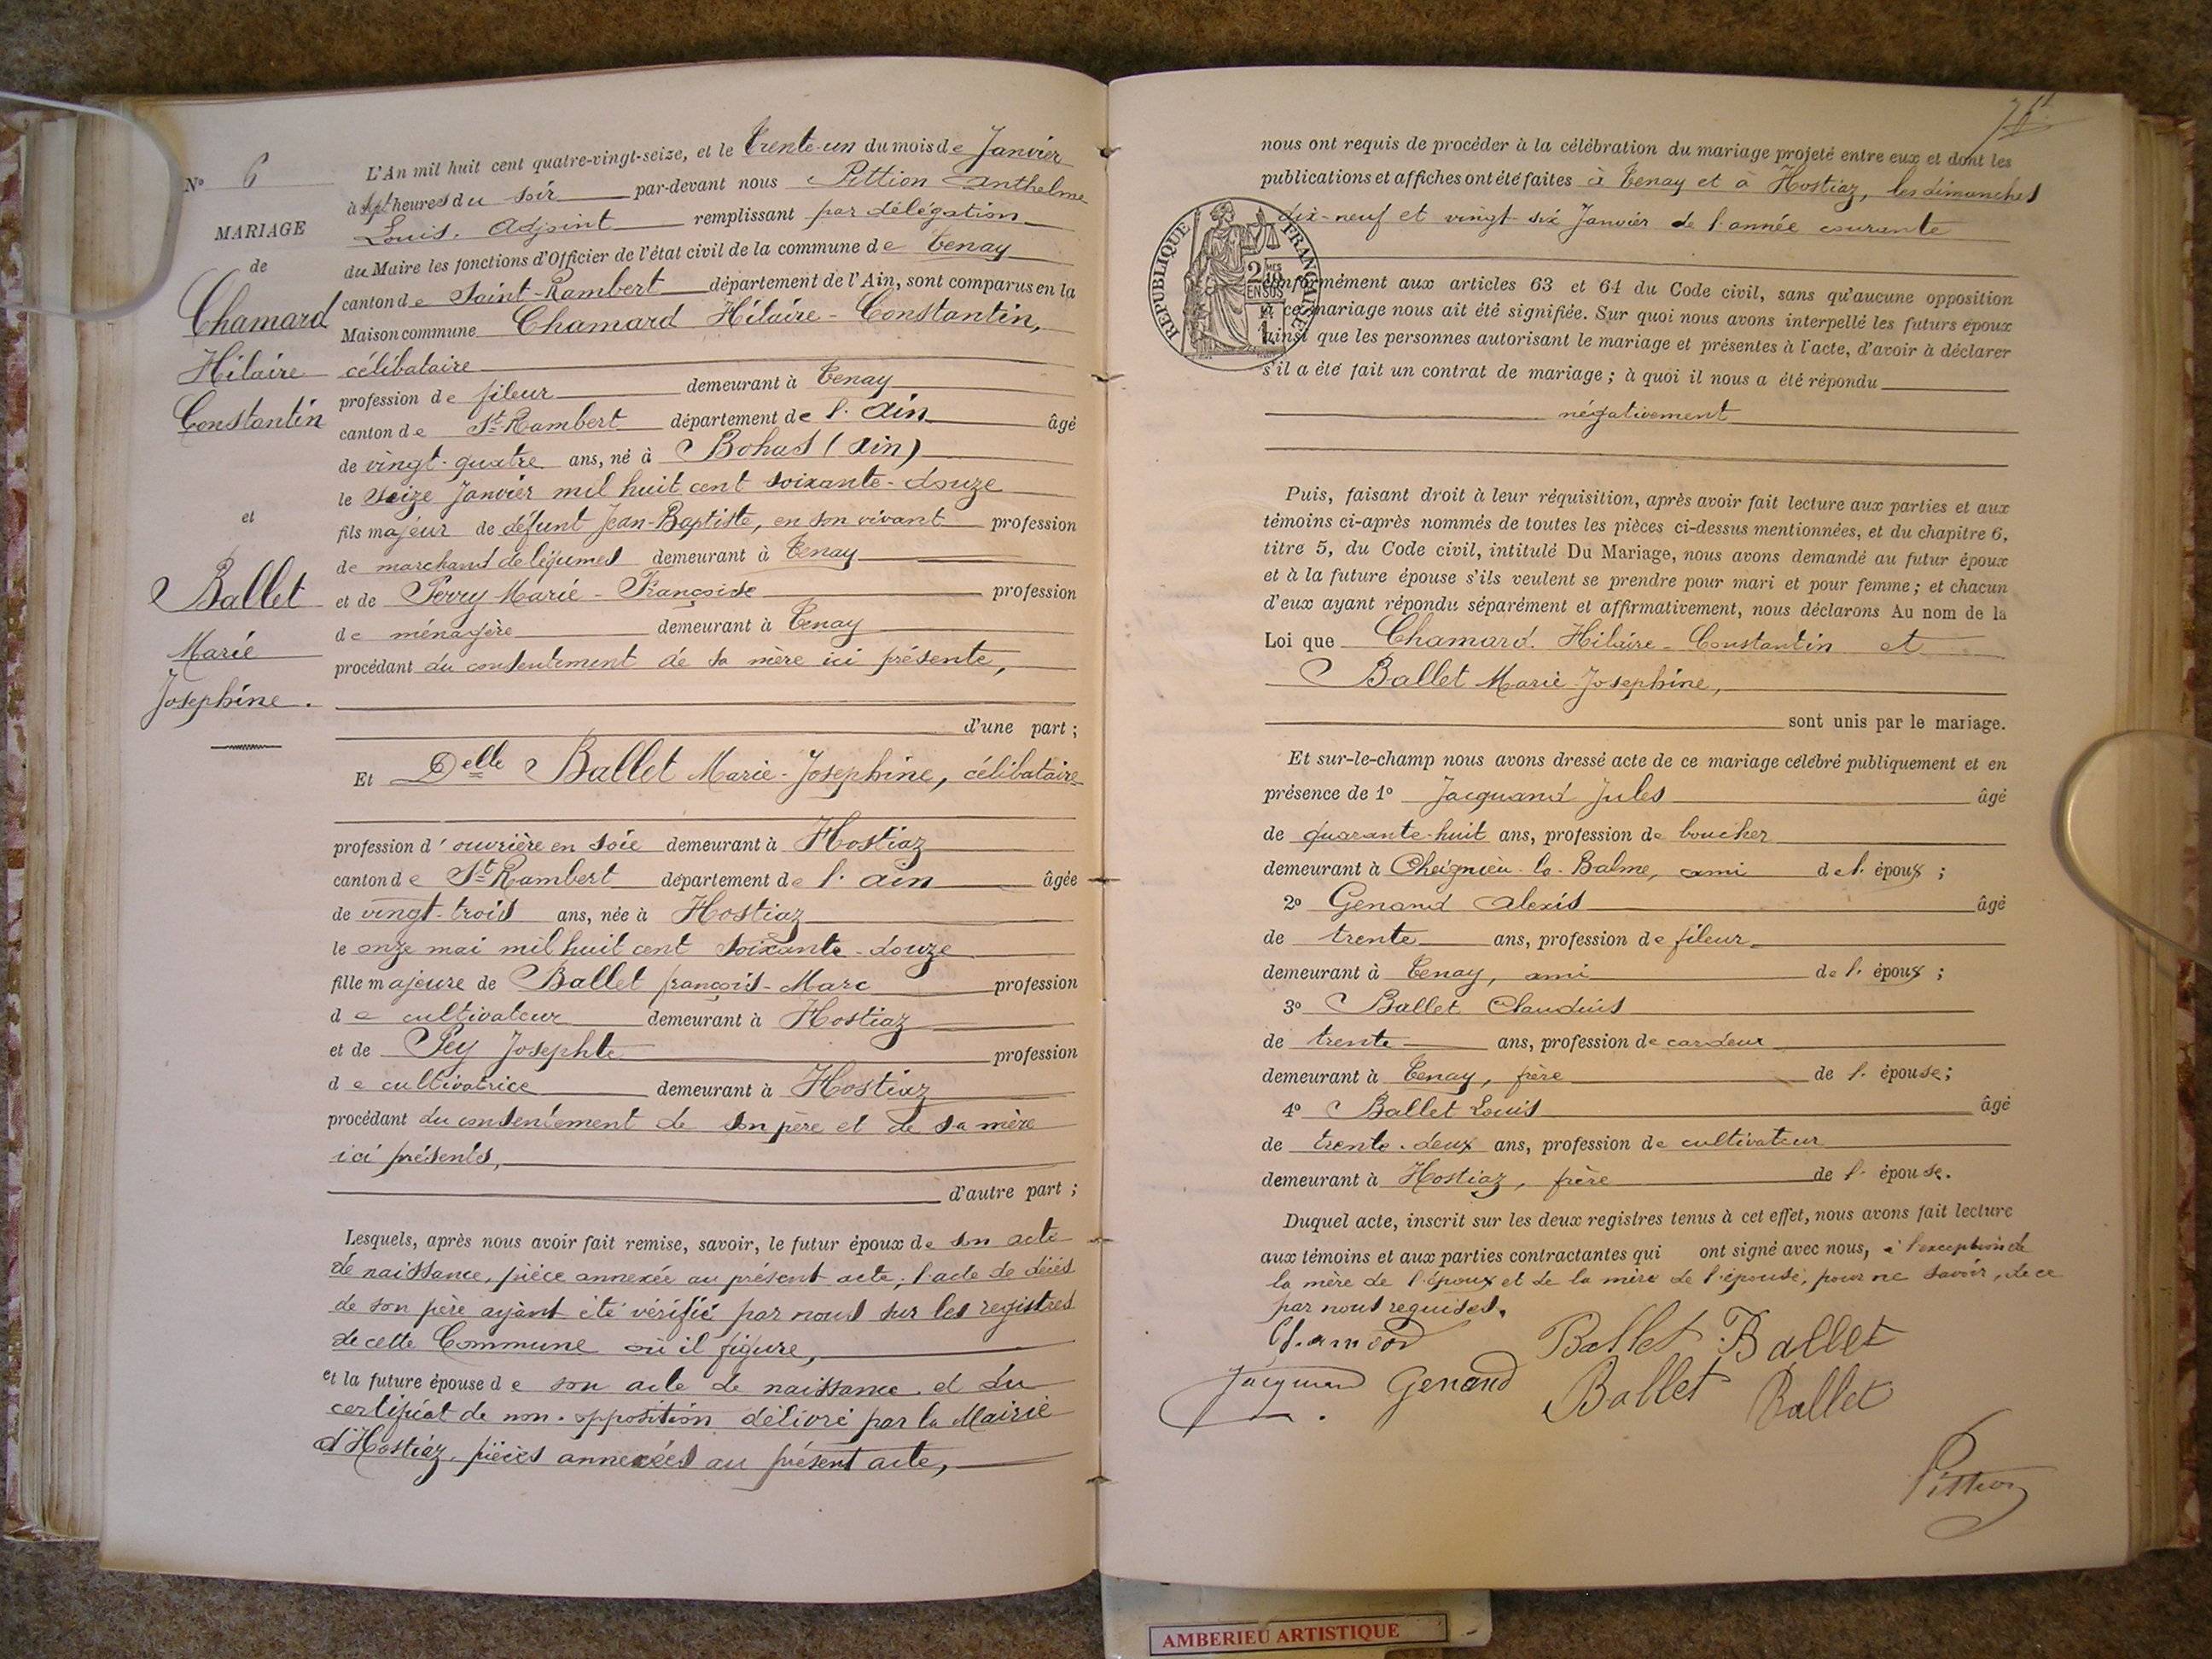 N° 6
MARIAGE
de
Chamard
Hilaire
Constantin
et
Ballet
Marie
Josephine.
L'An mil huit cent quatre-vingt-seize, et le trente-un du mois de Janvier
à sept heures du soir par-devant nous Pittion Anthelme
Louis, Adjoint remplissant par délégation
du Maire les fonctions d'Officier de l'état civil de la commune de Tenay
canton de Saint-Rambert département de l'Ain, sont comparus en la
Maison commune Chamard Hilaire-Constantin,
célibataire
profession de fileur demeurant à Tenay
canton de St-Rambert département de l'Ain âgé
de vingt-quatre ans, né à Bohas (Ain)
le seize Janvier mil huit cent soixante-douze
fils majeur de défunt Jean-Baptiste, en son vivant profession
de marchand de légumes demeurant à Tenay
et de Perry Marie-Françoise profession
de ménagère demeurant à Tenay
procédant du consentement de sa mère ici présente,
d'une part;
Et Delle Ballet Marie-Josephine, célibataire
profession d'ouvrière en soie demeurant à Hostiaz
canton de St-Rambert département de l'Ain âgée
de vingt-trois ans, née à Hostiaz
le onze mai mil huit cent soixante-douze
fille majeure de Ballet françois-Marc profession
de cultivateur demeurant à Hostiaz
et de Pey Josephte profession
de cultivatrice demeurant à Hostiaz
procédant du consentement de son père et de sa mère
ici présents,
d'autre part;
Lesquels, après nous avoir fait remise, savoir, le futur époux de son acte
de naissance, pièce annexée au présent acte; l'acte de décès
de son père ayant été vérifié par nous sur les registres
de cette Commune où il figure,
et la future épouse de son acte de naissance et du
certificat de non-opposition délivré par la Mairie
d'Hostiaz, pièces annexées au présent acte,
nous ont requis de procéder à la célébration du mariage projeté entre eux et dont les
publications et affiches ont été faites à Tenay et à Hostiaz, les dimanches
dix-neuf et vingt-six Janvier de l'année courante
RÉPUBLIQUE FRANÇAISE
2 MES 10
EN SUS
conformément aux articles 63 et 64 du Code civil, sans qu'aucune opposition
à ce mariage nous ait été signifiée. Sur quoi nous avons interpellé les futurs époux
ainsi que les personnes autorisant le mariage et présentes à l'acte, d'avoir à déclarer
s'il a été fait un contrat de mariage; à quoi il nous a été répondu
négativement
Puis, faisant droit à leur réquisition, après avoir fait lecture aux parties et aux
témoins ci-après nommés de toutes les pièces ci-dessus mentionnées, et du chapitre 6,
titre 5, du Code civil, intitulé Du Mariage, nous avons demandé au futur époux
et à la future épouse s'ils veulent se prendre pour mari et pour femme; et chacun
d'eux ayant répondu séparément et affirmativement, nous déclarons Au nom de la
Loi que Chamard Hilaire-Constantin et
Ballet Marie-Josephine,
sont unis par le mariage.
Et sur-le-champ nous avons dressé acte de ce mariage célébré publiquement et en
présence de 1° Jacquand Jules âgé
de quarante-huit ans, profession de boucher
demeurant à Cheignieu-la-Balme, ami de l'époux;
2° Genand Alexis âgé
de trente ans, profession de fileur
demeurant à Tenay, ami de l'époux;
3° Ballet Claudius
de trente ans, profession de cardeur
demeurant à Tenay, frère de l'épouse;
4° Ballet Louis âgé
de trente-deux ans, profession de cultivateur
demeurant à Hostiaz, frère de l'épouse.
Duquel acte, inscrit sur les deux registres tenus à cet effet, nous avons fait lecture
aux témoins et aux parties contractantes qui ont signé avec nous, à l'exception de
la mère de l'époux et de la mère de l'épouse, pour ne savoir, de ce
par nous requises.
Chamard Ballet Ballet
Jacquand Genand Ballet Ballet
Pittion
AMBERIEU ARTISTIQUE